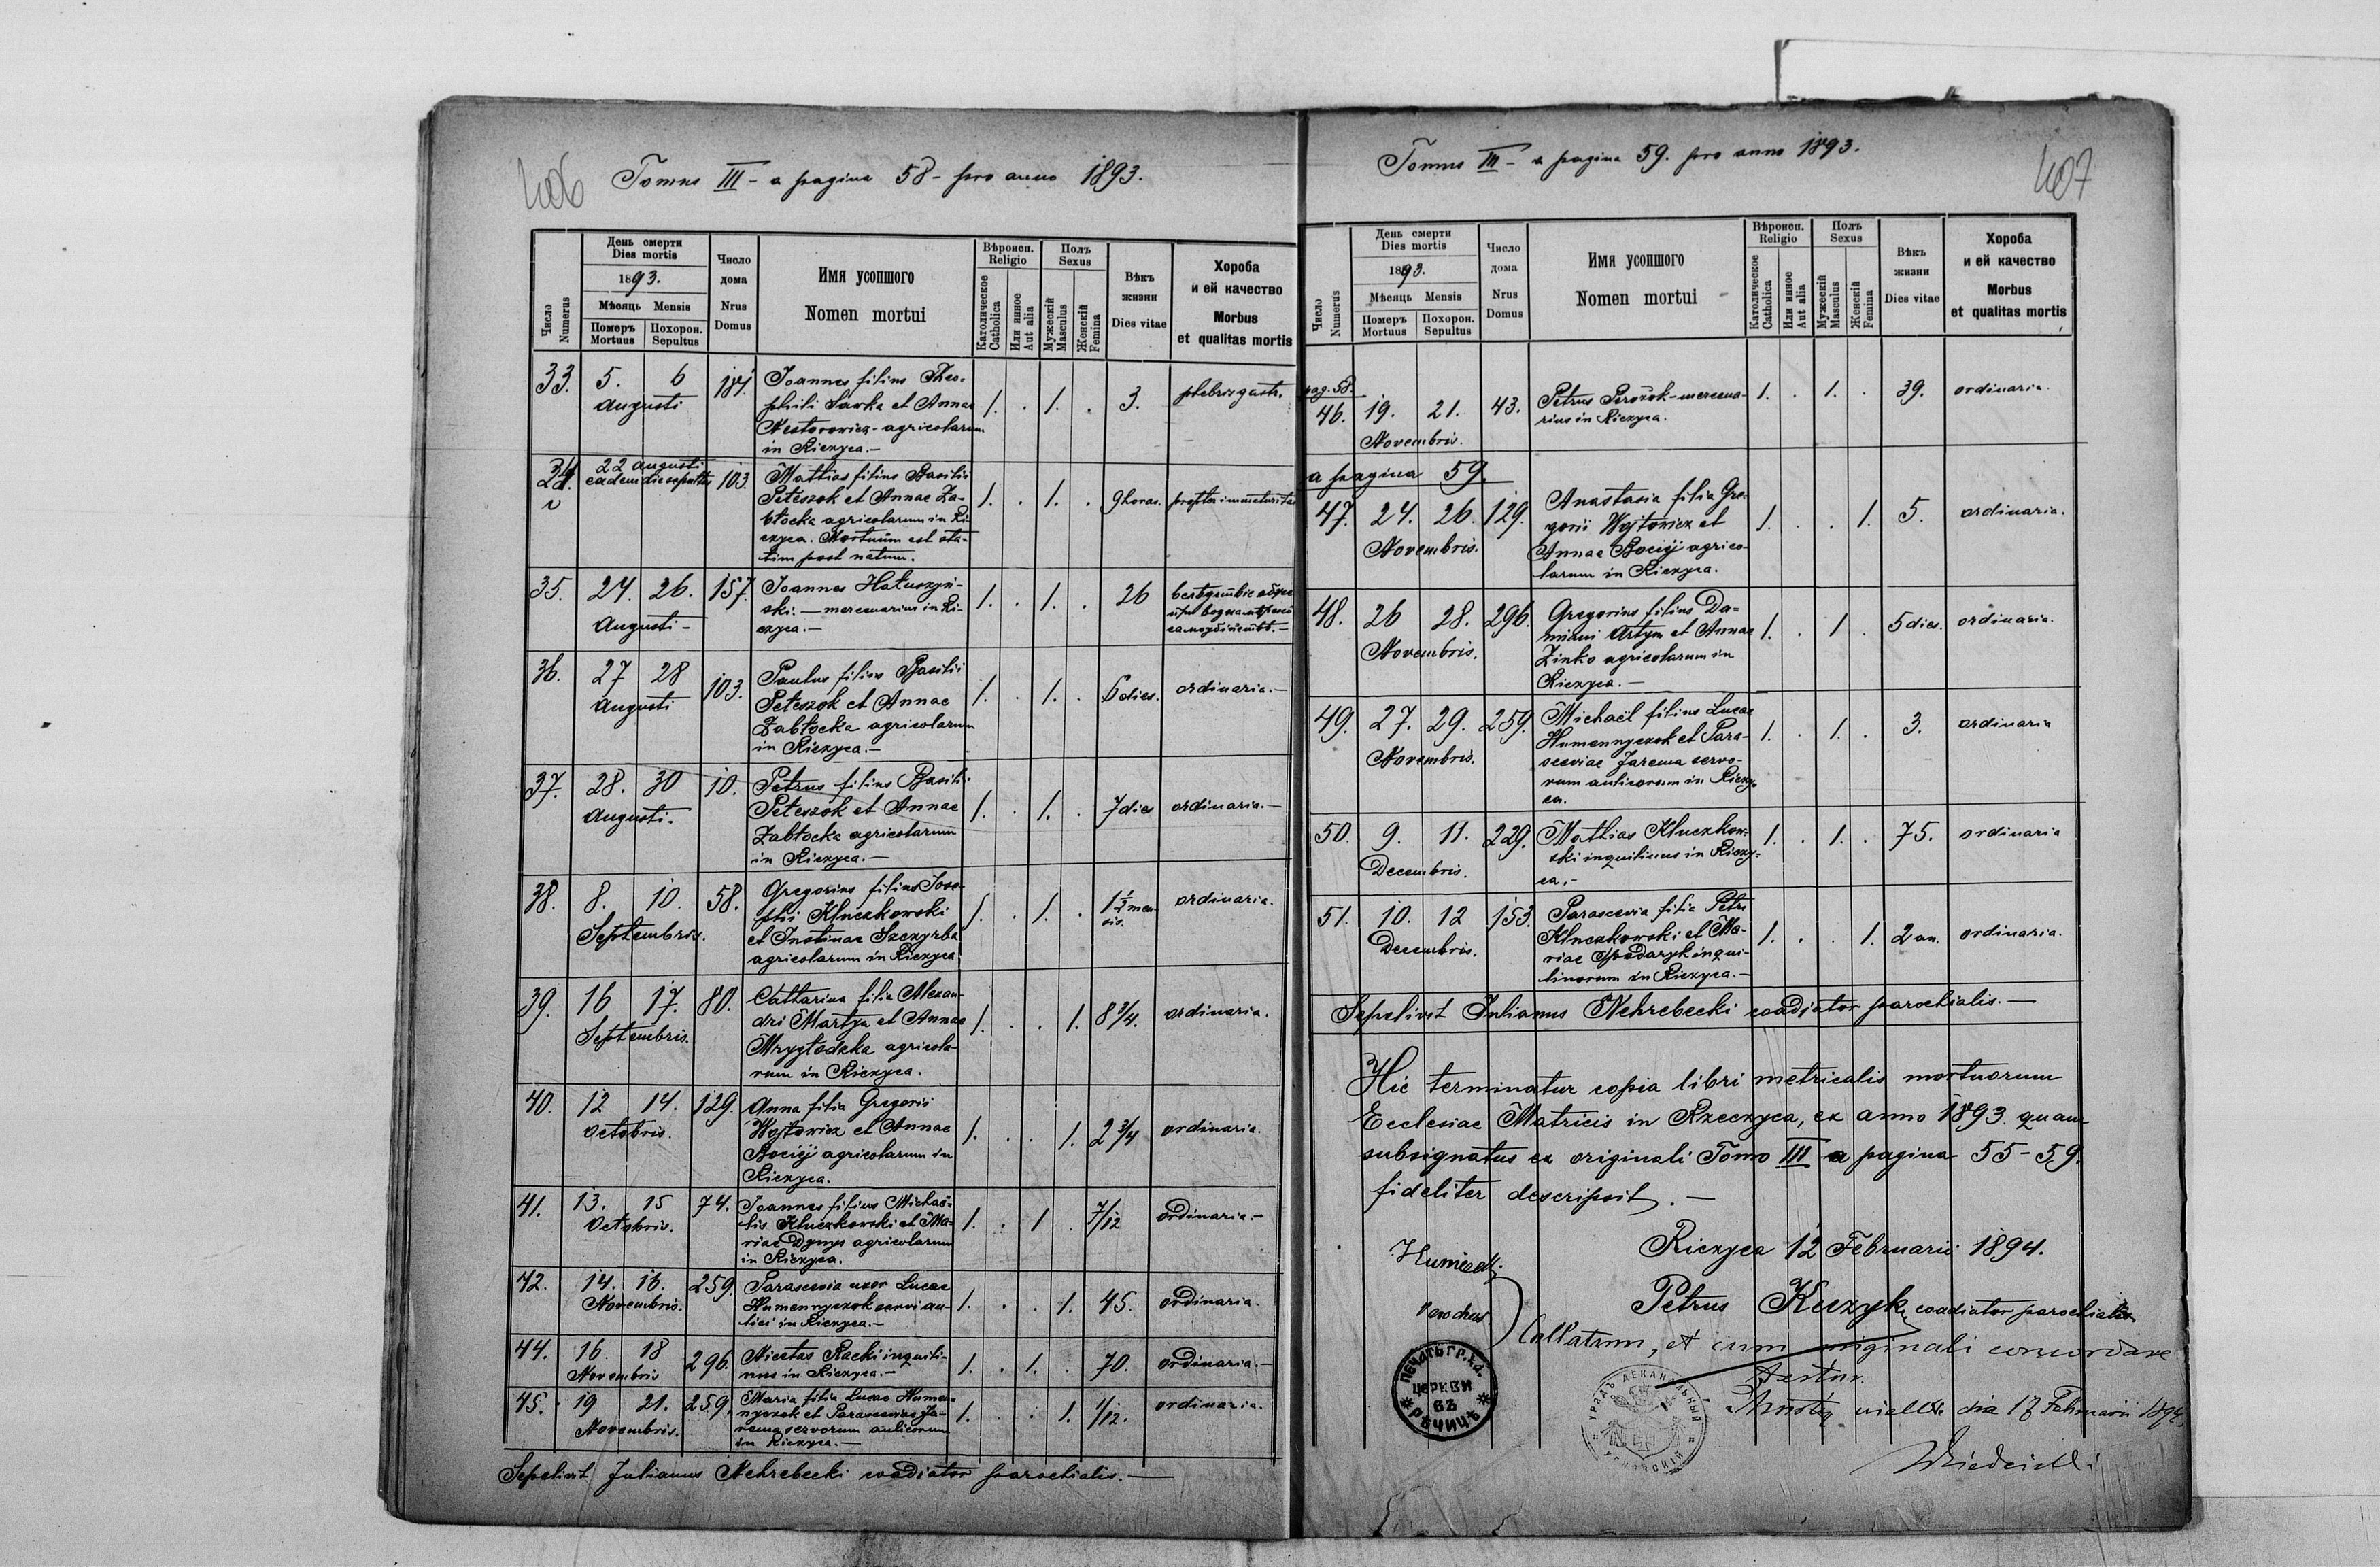 406
Tomus III - a pagina 58 - pro anno 1893.
Число Numerus
День смерти
Dies mortis
1893.
Мѣсяць Mensis
Померъ Mortuus
Похорон. Sepultus
Число дома
Nrus Domus
Имя усопшого
Nomen mortui
Вѣроисп. Religio
Католическое Catholica
Или инное Aut alia
Полъ Sexus
Мужескій Masculus
Женскій Femina
Вѣкъ жизни
Dies vitae
Хороба и ей качество
Morbus et qualitas mortis
33. 5. 6 Augusti 181.
Joannes filius Theo-
phili Sawka et Annae
Nestorowicz - agricolarum
in Riczyca. -
1. . 1. . 3.
34. 22 Augusti eadem die sepultus 103.
Mattias filius Basilii
Peteszok et Annae Za-
błocka agricolarum in Ri-
czyca. Mortuum est sta-
tim post natum.
1. . 1. . 9 horas. propter immaturitat
35. 24. 26. Augusti - 157.
Joannes Hałuszyń-
ski. - mercenarius in Ri-
czyca. -
1. . 1. . 26
36. 27 28 Augusti 103.
Paulus filius Basilii
Peteszok et Annae
Zabłocka agricolarum
in Riczyca. -
1. . 1. . 6 dies. ordinaria. -
37. 28. 30 Augusti. 10.
Petrus filius Basili
Peteszok et Annae
Zabłocka agricolarum
in Riczyca. -
1. . 1. . 7 dies ordinaria. -
38. 8. 10. Septembris. 58.
Gregorius filius Jose-
phi Kluczkowski
et Justinae Szczyrba
agricolarum in Riczyca
1. . 1. . 1½ men-
sis. ordinaria.
39. 16 17. Septembris. 80.
Catharina filia Alexan-
dri Martyn et Annae
Mrygłodzka agricola-
rum in Riczyca.
1. . . 1. 8¾. ordinaria.
40. 12 14. Octobris. 129.
Anna filia Gregorii
Wojtowicz et Annae
Bocij agricolarum in
Riczyca.
1. . . 1. 2¾ ordinaria.
41. 13. 15 Octobris. 74.
Joannes filius Michaë-
lis Kluczkowski et Ma-
riae Dymys agricolarum
in Riczyca.
1. . 1 . 7/12 ordinaria. -
42. 14. 16. Novembris. 259.
Parascevia uxor Lucae
Humennyczok servi au-
lici in Riczyca. -
1. . . 1. 45. ordinaria.
44. 16. 18 Novembris 296.
Nicetas Racki inquili-
nus in Riczyca. -
1. . 1. . 70. ordinaria. -
45. 19 21. Novembris. 259.
Maria filia Lucae Humen-
nyczok et Parasceviae Ja-
rema servorum aulicorum
in Riczyca. -
1. . . 1. 1/12. ordinaria.
Sepelivit Julianus Nehrebecki coadiator parochialis. -
407
Tomus III - a pagina 59. pro anno 1893.
Число Numerus
День смерти
Dies mortis
1893.
Мѣсяць Mensis
Померъ Mortuus
Похорон. Sepultus
Число дома
Nrus Domus
Имя усопшого
Nomen mortui
Вѣроисп. Religio
Католическое Catholica
Или инное Aut alia
Полъ Sexus
Мужескій Masculus
Женскій Femina
Вѣкъ жизни
Dies vitae
Хороба и ей качество
Morbus et qualitas mortis
pag. 58.
46. 19. 21. Novembris. 43.
Petrus Perożok - mercena-
rius in Riczyca.
1. . 1. . 39. ordinaria.
a pagina 59.
47. 24. 26. Novembris. 129.
Anastasia filia Gre-
gorii Wojtowicz et
Annae Bocij agrico-
larum in Riczyca.
1. . . 1. 5. ordinaria.
48. 26 28. Novembris. 296.
Gregorius filius Da-
miani Artym et Annae
Zinko agricolarum in
Riczyca. -
1. . 1 . 5 dies. ordinaria.
49. 27. 29. Novembris. 259.
Michaël filius Lucae
Humennyczok et Para-
sceviae Jarema servo-
rum aulicorum in Riczy-
ca.
1. . 1. . 3. ordinaria
50. 9. 11. Decembris. 229.
Mathias Kluczkow-
ski inquilinus in Riczy-
ca. -
1. . 1. . 75. ordinaria
51. 10. 12 Decembris. 153.
Parascevia filia Petri
Kluczkowski et Ma-
riae Hodaryk inqui-
linorum in Riczyca. -
1. . . 1. 2 an. ordinaria.
Sepelivit Julianus Nehrebecki coadjator parochialis. -
Hic terminatur copia libri metricalis mortuorum
Ecclesiae Matricis in Rzeczyca, ex anno 1893. quam
subsignatus ex originali Tomo III a pagina 55-59.
fideliter descripsit. -
Riczyca 12 Februarii 1894.
Petrus Kuzyk coadiator parochialis
Parochus
Collatum, et cum originali concordare
testor.
die 17 Februarii 1894
ПЕЧАТЬ ГР. КА. ЦЕРКВИ ВЪ РѢЧИЦѢ
УРЯДЪ ДЕКАНАЛЬНЫЙ УГНОВСКІЙ